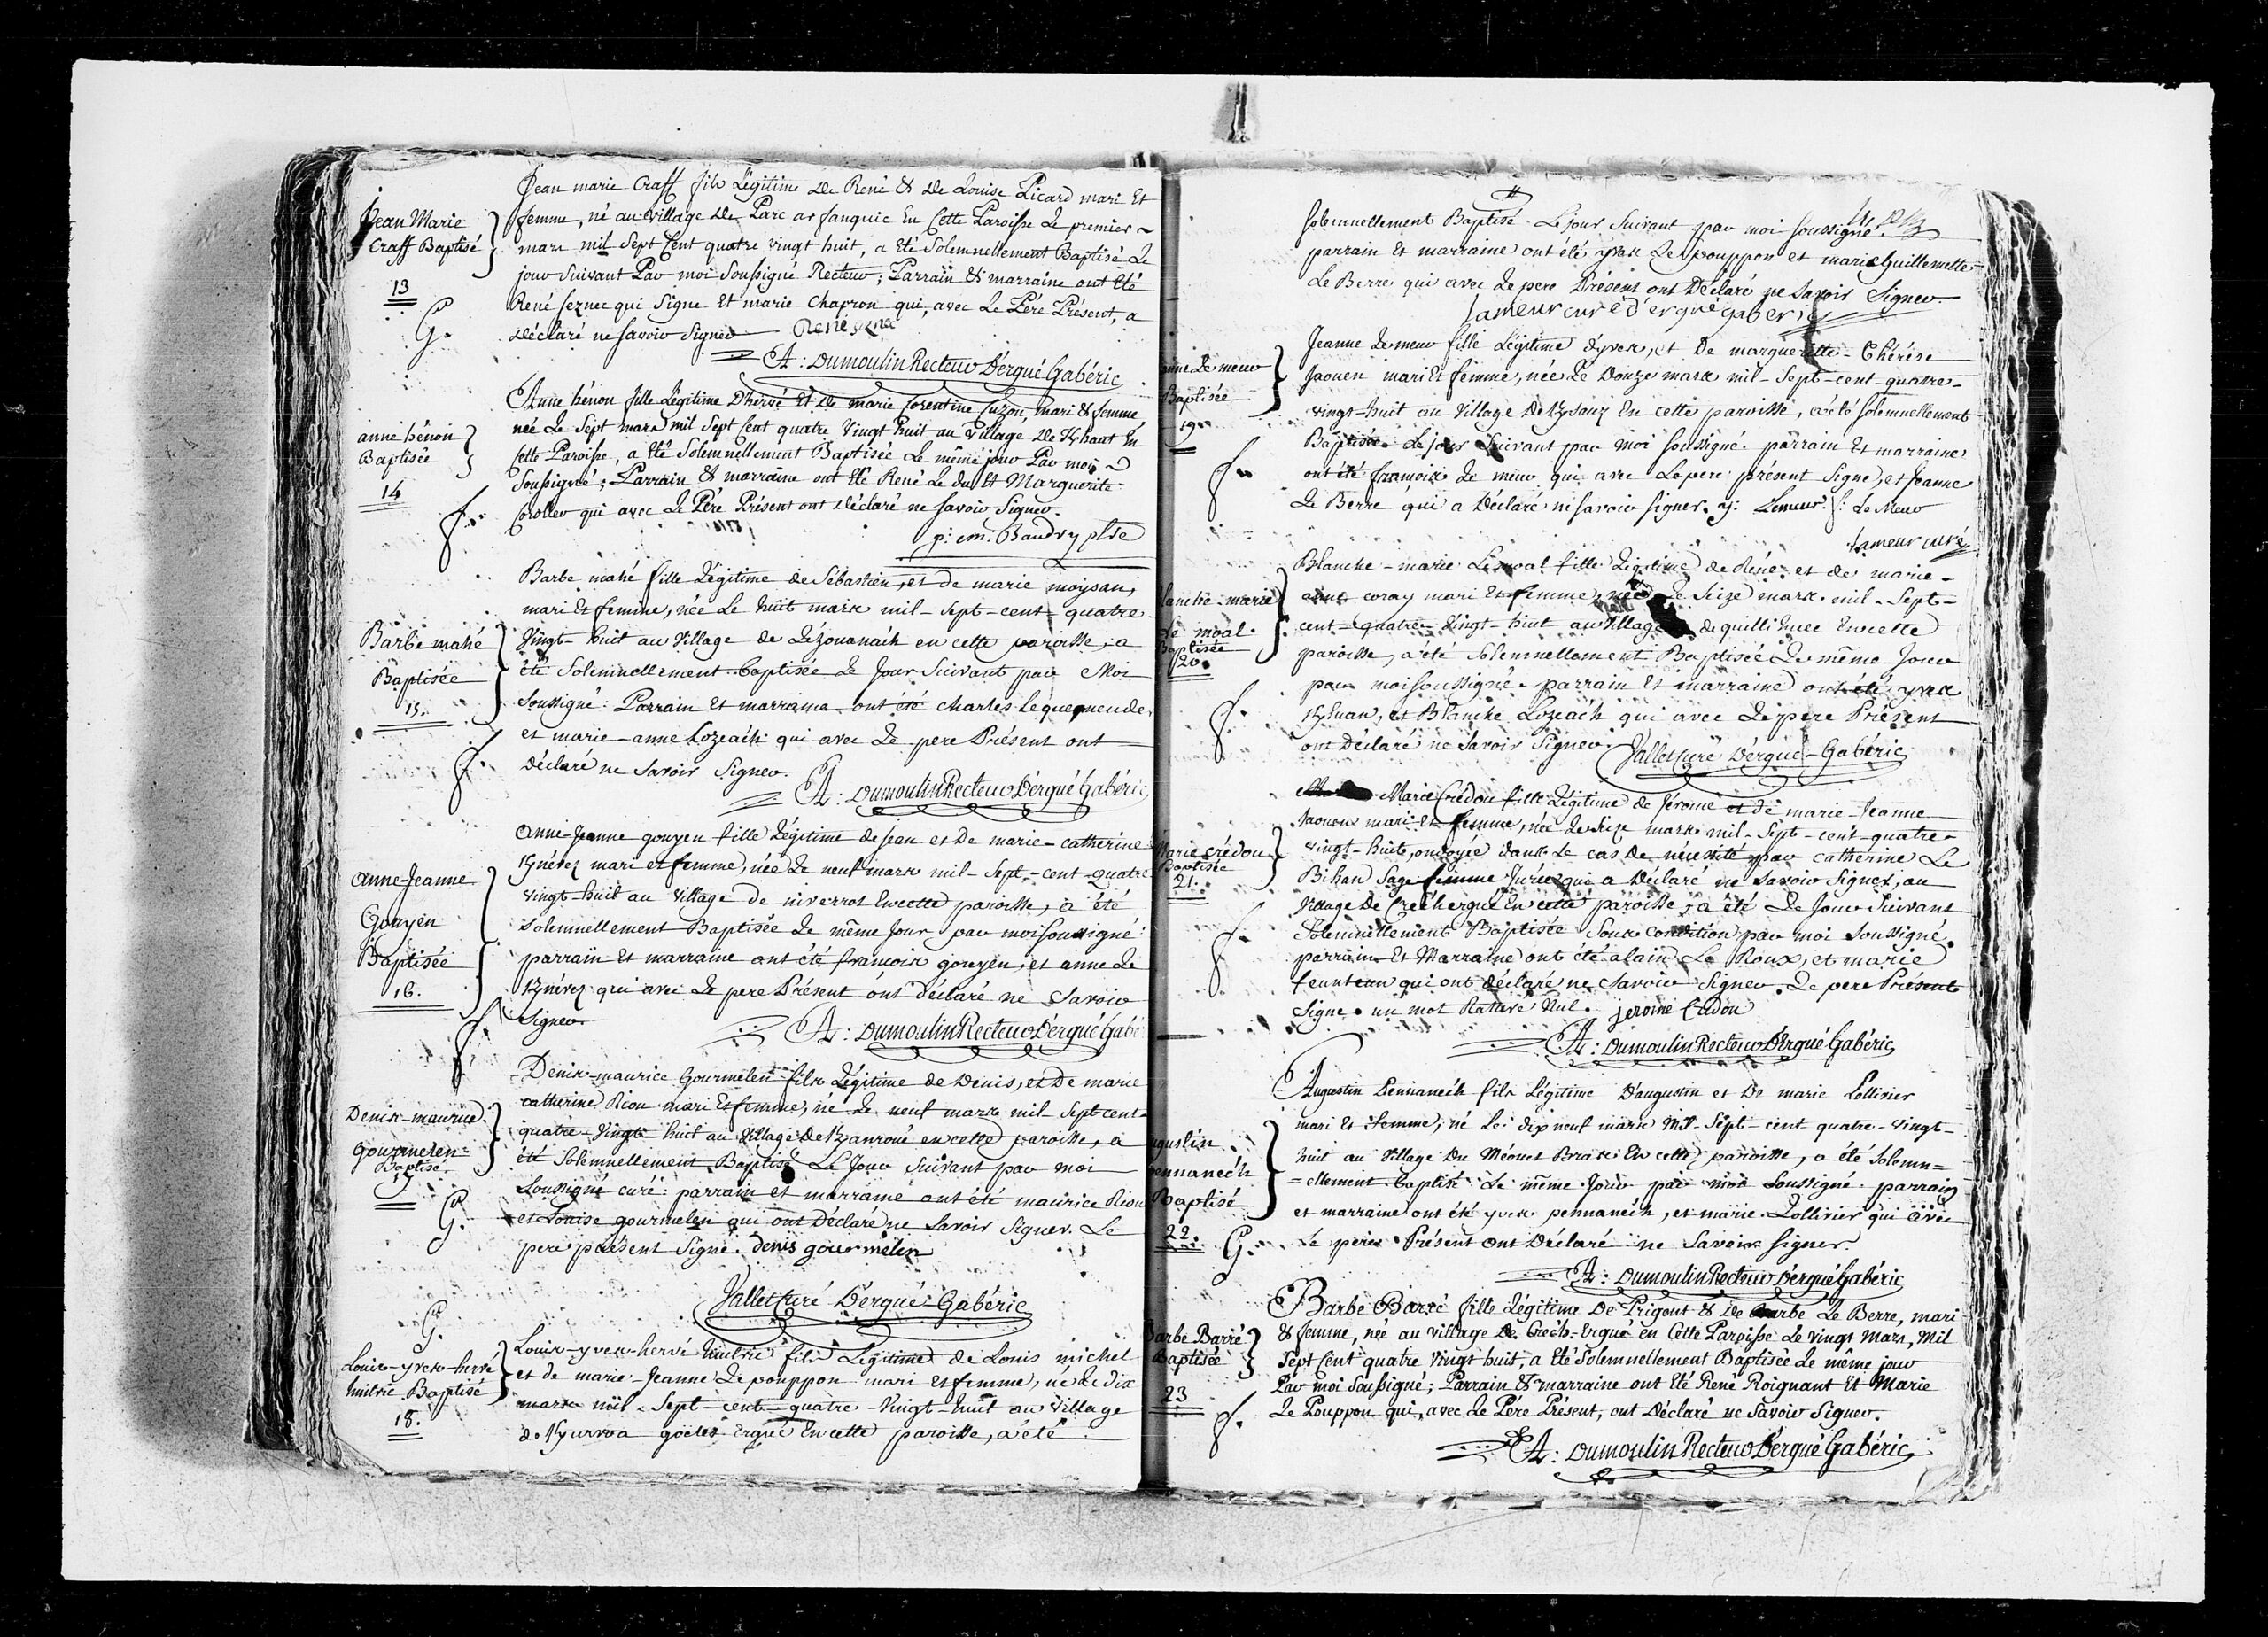 Jean Marie
Craff Baptisé
13
G.
Jean marie Craff fils Légitime de René & de Louise Picard mari Et
femme, né au village de Parc ar fanquic En Cette Paroisse Le premier
mars mil Sept Cent quatre vingt huit, a Eté Solemnellement Baptisé Le
jour Suivant Par moi Soussigné Recteur; Parrain & marraine ont Eté
René seznec qui Signe Et marie Chapron qui, avec Le Pére Présent, a
Déclaré ne savoir Signer René seznec
A: Dumoulin Recteur D'ergué Gabéric
anne hénon
Baptisée
14
f.
Anne hénon fille Légitime D'hervé Et de marie Corentine Cuzon, mari & femme
née Le Sept mars mil Sept Cent quatre Vingt huit au Village de Khaut En
Cette Paroisse, a Eté Solemnellement Baptisée Le même jour Par moi
Soussigné; Parrain & marraine ont Eté René Le du Et Marguerite
Coroller qui avec Le Pére Présent ont Déclaré ne savoir Signer.
p: em: Baudry ptre
Barbe mahé
Baptisée
15.
f.
Barbe mahé fille Légitime de Sébastien, et de marie moysan,
mari Et femme, née Le huit mars mil-Sept-cent-quatre
Vingt-huit au Village de Lézouanach en cette paroisse, a
été Solemnellement Baptisée Le Jour Suivant par Moi
Soussigné: Parrain Et marraine ont été charles
et marie-anne Lozeach qui avec Le pere Présent ont
déclaré ne Savoir Signer.
A: Dumoulin Recteur D'ergué Gabéric
anne-Jeanne
Gouyen
Baptisée
16.
f.
anne-Jeanne gouyen fille Légitime de jean et De marie-catherine
Knévez mari et femme, née Le neuf mars mil-Sept-cent-quatre
vingt-huit au village de niverrot En cette paroisse, a été
Solemnellement Baptisée Le même Jour par moi soussigné:
parrain Et marraine ont été francois gouyen, et anne Le
Knévez qui avec Le pere Présent ont déclaré ne Savoir
Signer.
A: Dumoulin Recteur D'ergué Gabé
Denis-maurice
gourmelen
Baptisé.
17
G.
Denis-maurice gourmelen fils Légitime de Denis, et De marie
catherine Riou mari Et femme, né Le neuf mars mil Sept cent
quatre-Vingt-huit au Village de Kanroué en cette paroisse, a
été Solemnellement Baptisé Le Jour Suivant par moi
Soussigné curé: parrain et marraine ont été maurice Riou
et Louise gourmelen qui ont Déclaré ne Savoir Signer. Le
pere présent Signe. denis gourmelen
Jallet Curé D'ergué-Gabéric
G.
Louis-yves-herve
huitric Baptisé
18.
Louis-yves-hervé huitric fils Légitime de Louis michel
et de marie-Jeanne Le pouppon mari et femme, né Le dix
mars mil-Sept-cent-quatre-Vingt-huit au Village
de Kourvoa Ergué En cette paroisse, a été
Solemnellement Baptisé Le jour Suivant par moi soussigné.
parrain Et marraine ont été yves Le pouppon et marie Guillemette
Le Berre qui avec Le pere Présent ont Déclaré ne Savoir Signer
Lameur curé d'ergué gaberic
Le meur
Baptisée
19.
f.
Jeanne Le meur fille Légitime d'yves, et De marguerite-Thérése
Jaouen mari Et femme, née Le Douze mars mil-Sept-cent-quatre-
vingt-huit au Village De Ksauz En cette paroisse, a été solemnellement
Baptisée Le jour Suivant par moi soussigné. parrain Et marraine
ont été francois Le meur qui avec Le pere présent Signe, et Jeanne
Le Berre qui a Déclaré ne savoir signer. y: Lemeur. f: Le Meur
Lameur curé
lanche-marie
Le moal
Baptisée
20.
f.
Blanche-marie Le moal fille Légitime de Réné, et de marie-
coray mari Et femme, née Le Seize mars mil-Sept-
cent-quatre-Vingt huit au Village de quillihuec En cette
paroisse, a été Solemnellement Baptisée Le même Jour
par moi soussigné. parrain Et marraine ont été yves
Kluan, et Blanche Lozeach qui avec Le pere Présent
ont Déclaré ne Savoir Signer. Jallet Curé D'ergué-Gabéric
Marie Crédou
Baptisée
21.
f.
Marie Crédou fille Légitime de Jérome et de marie-Jeanne
Jaouen mari Et femme, née Le Seize mars mil-Sept-cent-quatre-
vingt-huit, ondoyée dans Le cas De nécessité par catherine Le
Bihan Sage femme Jurée qui a Déclaré ne Savoir Signer, au
Village De Crec'hergué En cette paroisse, a été Le Jour Suivant
Solemnellement Baptisée Sous Condition par moi Soussigné.
parrain Et Marraine ont été alain Le Roux, et marie
feunteun qui ont déclaré ne Savoir Signer. Le pere Présent
Signe. un mot Raturé Nul. jerome Credou
A: Dumoulin Recteur D'ergué Gabéric
ugustin
ennanec'h
Baptisé
22.
G.
Augustin Pennanec'h fils Légitime D'augustin et De marie Lollivier
mari Et femme, né Le dix neuf mars Mil-Sept-cent quatre-vingt-
huit au Village Du Méouet Braz En cette paroisse, a été solemn=
=ellement Baptisé Le même Jour par moi Soussigné. parrain
et marraine ont été yves pennanéch, et marie Lollivier qui avec
Le pere Présent ont Déclaré ne Savoir signer.
A: Dumoulin Recteur D'ergué Gabéric
arbe Barré
Baptisée
23
f.
Barbe Barré fille Légitime De Prigent & de Barbe Le Berre, mari
& femme, née au Village de Crec'h-Ergué en Cette Paroisse Le vingt Mars, Mil
Sept Cent quatre Vingt huit, a Eté Solemnellement Baptisée Le même jour
Par moi Soussigné; Parrain & marraine ont Eté René Roignant Et Marie
Le Pouppon qui, avec Le Pére Présent, ont Déclaré ne Savoir Signer.
A: Dumoulin Recteur D'ergué Gabéric